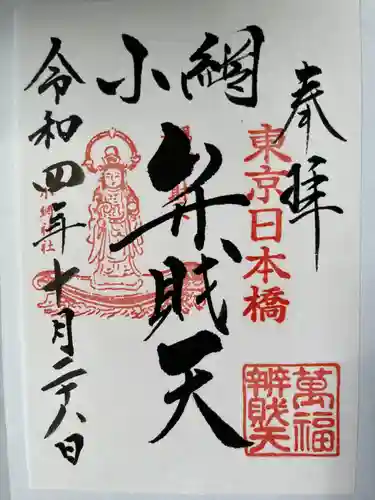 奉拝
東京日本橋
萬福
辨財天
小網
弁財天
令和四年十月二十八日